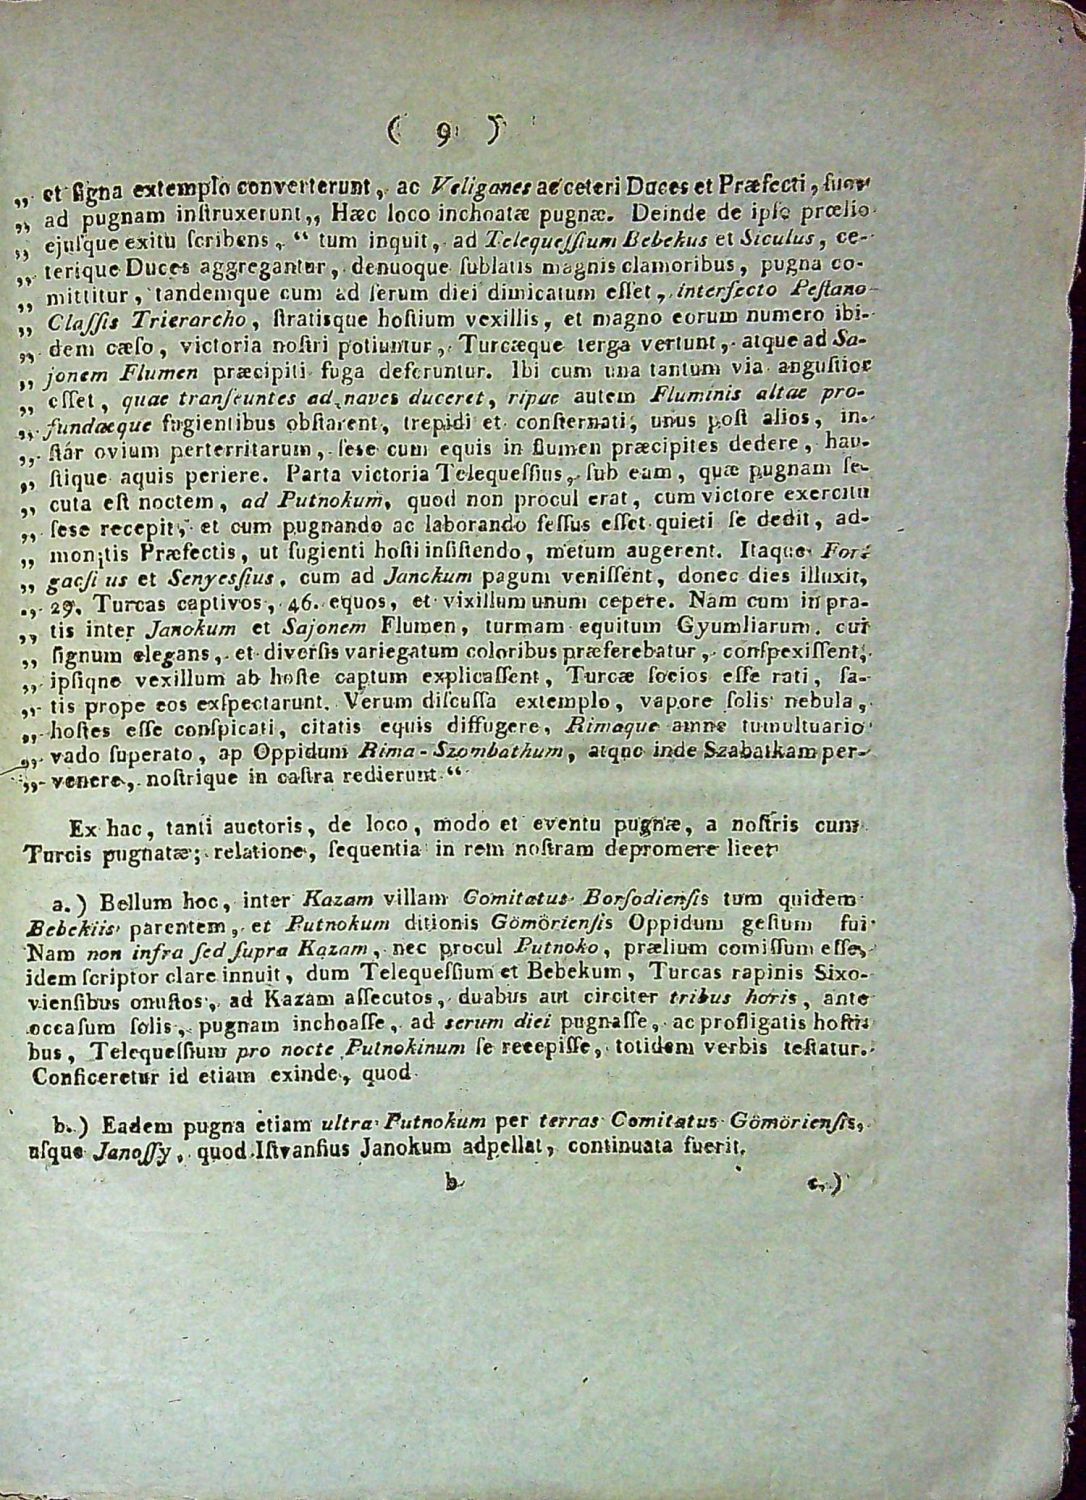 ( 9 )
„ et ſigna extemplo converterunt, ac Veliganes ac ceteri Duces et Præfecti, ſuos
„ ad pugnam inſtruxerunt„ Hæc loco inchoatæ pugnæ. Deinde de ipſo prœlio
„ ejuſque exitu ſcribens, “ tum inquit, ad Telequeſſium Bebekus et Siculus, ce-
„ terique Duces aggregantur, denuoque ſublatis magnis clamoribus, pugna co-
„ mittitur, tandemque cum ad ſerum diei dimicatum eſſet, interfecto Peſtano
„ Claſſis Trierarcho, ſtratisque hoſtium vexillis, et magno eorum numero ibi-
„ dem cæſo, victoria noſtri potiuntur, Turcæque terga vertunt, atque ad Sa-
„ jonem Flumen præcipiti fuga deferuntur. Ibi cum una tantum via anguſtior
„ eſſet, quae tranſeuntes ad naves duceret, ripae autem Fluminis altae pro-
„ fundæque fugientibus obſtarent, trepidi et conſternati, unus poſt alios, in-
„ ſtár ovium perterritarum, ſese cum equis in flumen præcipites dedere, hau-
„ ſtique aquis periere. Parta victoria Telequeſſius, ſub eam, quæ pugnam ſe-
„ cuta eſt noctem, ad Putnokum, quod non procul erat, cum victore exercitu
„ ſese recepit, et cum pugnando ac laborando feſſus eſſet quieti ſe dedit, ad-
„ monitis Præfectis, ut fugienti hoſti inſiſtendo, metum augerent. Itaque For-
„ gacſius et Senyesſius, cum ad Janokum pagum veniſſent, donec dies illuxit,
„ 29. Turcas captivos, 46. equos, et vixillum unum cepere. Nam cum in pra-
„ tis inter Janokum et Sajonem Flumen, turmam equitum Gyumliarum, cui
„ ſignum elegans, et diverſis variegatum coloribus præferebatur, conſpexiſſent,
„ ipſique vexillum ab hoſte captum explicaſſent, Turcæ ſocios eſſe rati, ſa-
„ tis prope eos exſpectarunt. Verum diſcuſſa extemplo, vapore ſolis nebula,
„ hoſtes eſſe conſpicati, citatis equis diffugere, Rimaque amne tumultuario
„ vado ſuperato, ap Oppidum Rima-Szombathum, atque inde Szabatkam per-
„ venere, noſtrique in caſtra redierunt “
Ex hac, tanti auctoris, de loco, modo et eventu pugnæ, a noſtris cum
Turcis pugnatæ; relatione, ſequentia in rem noſtram depromere licet
a.) Bellum hoc, inter Kazam villam Comitatus Borſodienſis tum quidem
Bebekiis parentem, et Putnokum ditionis Gömörienſis Oppidum geſtum fui
Nam non infra ſed ſupra Kazam, nec procul Putnoko, prælium comiſſum eſſe,
idem ſcriptor clare innuit, dum Telequeſſium et Bebekum, Turcas rapinis Sixo-
vienſibus onuſtos, ad Kazam aſſecutos, duabus aut circiter tribus horis, ante
occaſum ſolis, pugnam inchoaſſe, ad serum diei pugnaſſe, ac profligatis hoſtis
bus, Telequeſſium pro nocte Putnokinum ſe recepiſſe, totidem verbis teſtatur.
Conficeretur id etiam exinde, quod
b.) Eadem pugna etiam ultra Putnokum per terras Comitatus Gömörienſis,
uſque Janoſſy, quod Iſtvanfius Janokum adpellat, continuata fuerit.
b c.)